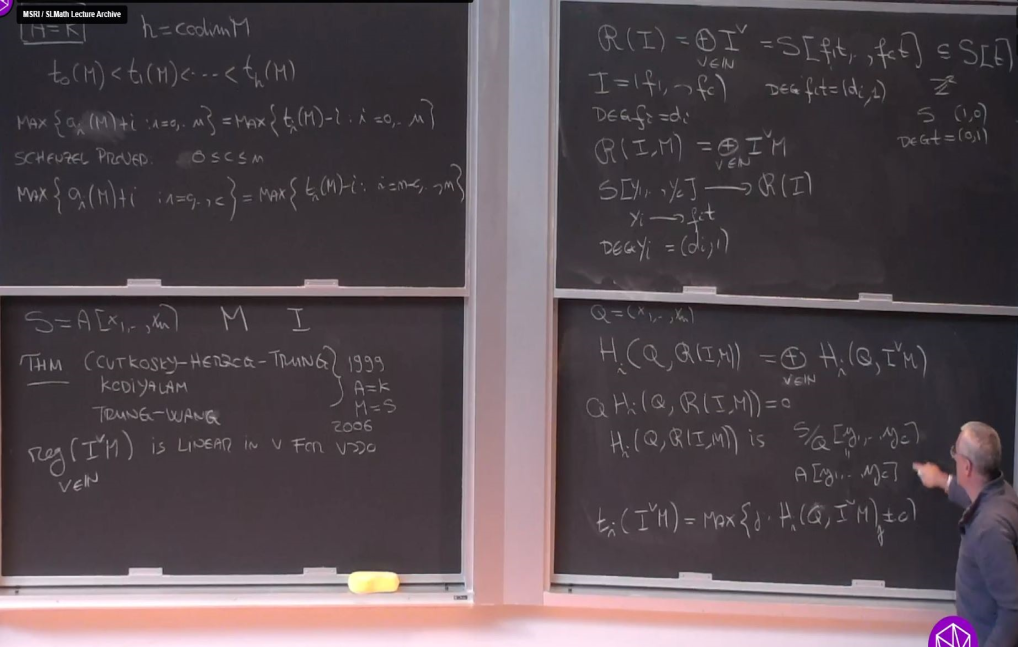 MSRI / SLMath Lecture Archive
A=K h=codim M
t₀(M)<t₁(M)<⋯<tₕ(M)
MAX{aᵢ(M)+i : i=0,..n}=MAX{tᵢ(M)-i : i=0,..n}
SCHENZEL PROVED. 0≤c≤n
MAX{aᵢ(M)+i : i=0,..,c}=MAX{tᵢ(M)-i: i=n-c,..,n}
S=A[x₁,..,xₙ] M I
THM (CUTKOSKY-HERZOG-TRUNG } 1999
KODIYALAM A=K
M=S
TRUNG-WANG 2006
reg(IᵛM) IS LINEAR IN v FOR v>>0
v∈IN
R(I)=⊕Iᵛ=S[f₁t,..,f_ct]⊆S[t]
v∈IN
I=(f₁,..,f_c) DEG fᵢt=(dᵢ,1) ℤ²
DEG fᵢ=dᵢ S (1,0)
DEG t=(0,1)
R(I,M)=⊕IᵛM
v∈IN
S[y₁,..,y_c]⟶R(I)
yᵢ⟶fᵢt
DEG yᵢ=(dᵢ,1)
Q=(x₁,..,xₙ)
Hᵢ(Q,R(I,M))=⊕Hᵢ(Q,IᵛM)
v∈IN
QHᵢ(Q,R(I,M))=0
Hᵢ(Q,R(I,M)) is S/Q[y₁,..y_c]
"
A[y₁,..y_c]
tᵢ(IᵛM)=MAX{j: Hᵢ(Q,IᵛM)ⱼ≠0}